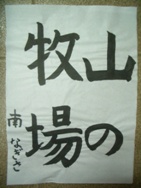 山の
牧場
南なぎさ